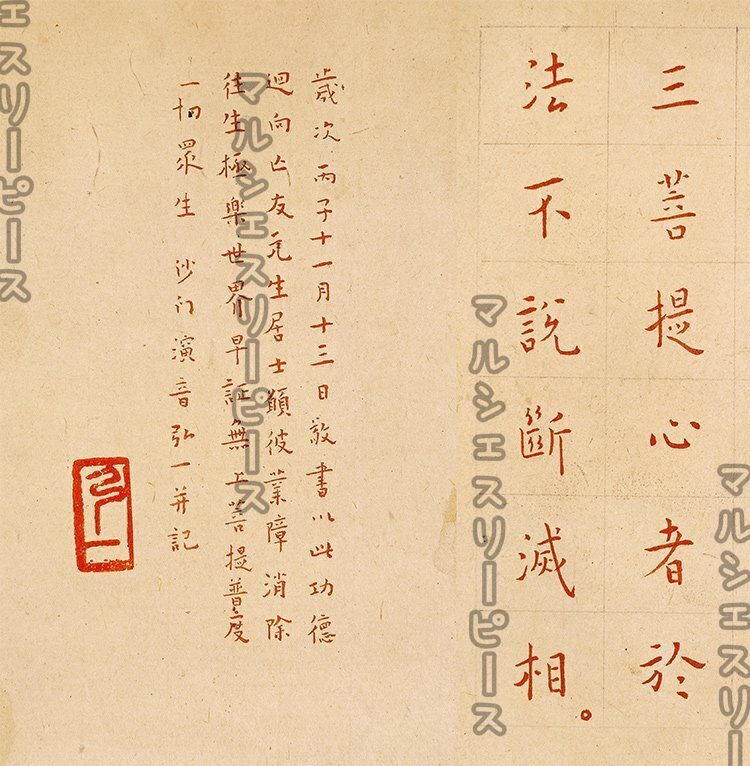 三菩提心者於
法不說斷滅相。
歲次丙子十一月十三日敬書以此功德
迴向亡友生居士願彼業障消除
往生極樂世界早証無上菩提普度
一切眾生 沙門演音弘一并記
弘一
マルシェスリーピース
マルシェスリーピース
マルシェスリ
ェスリーピース